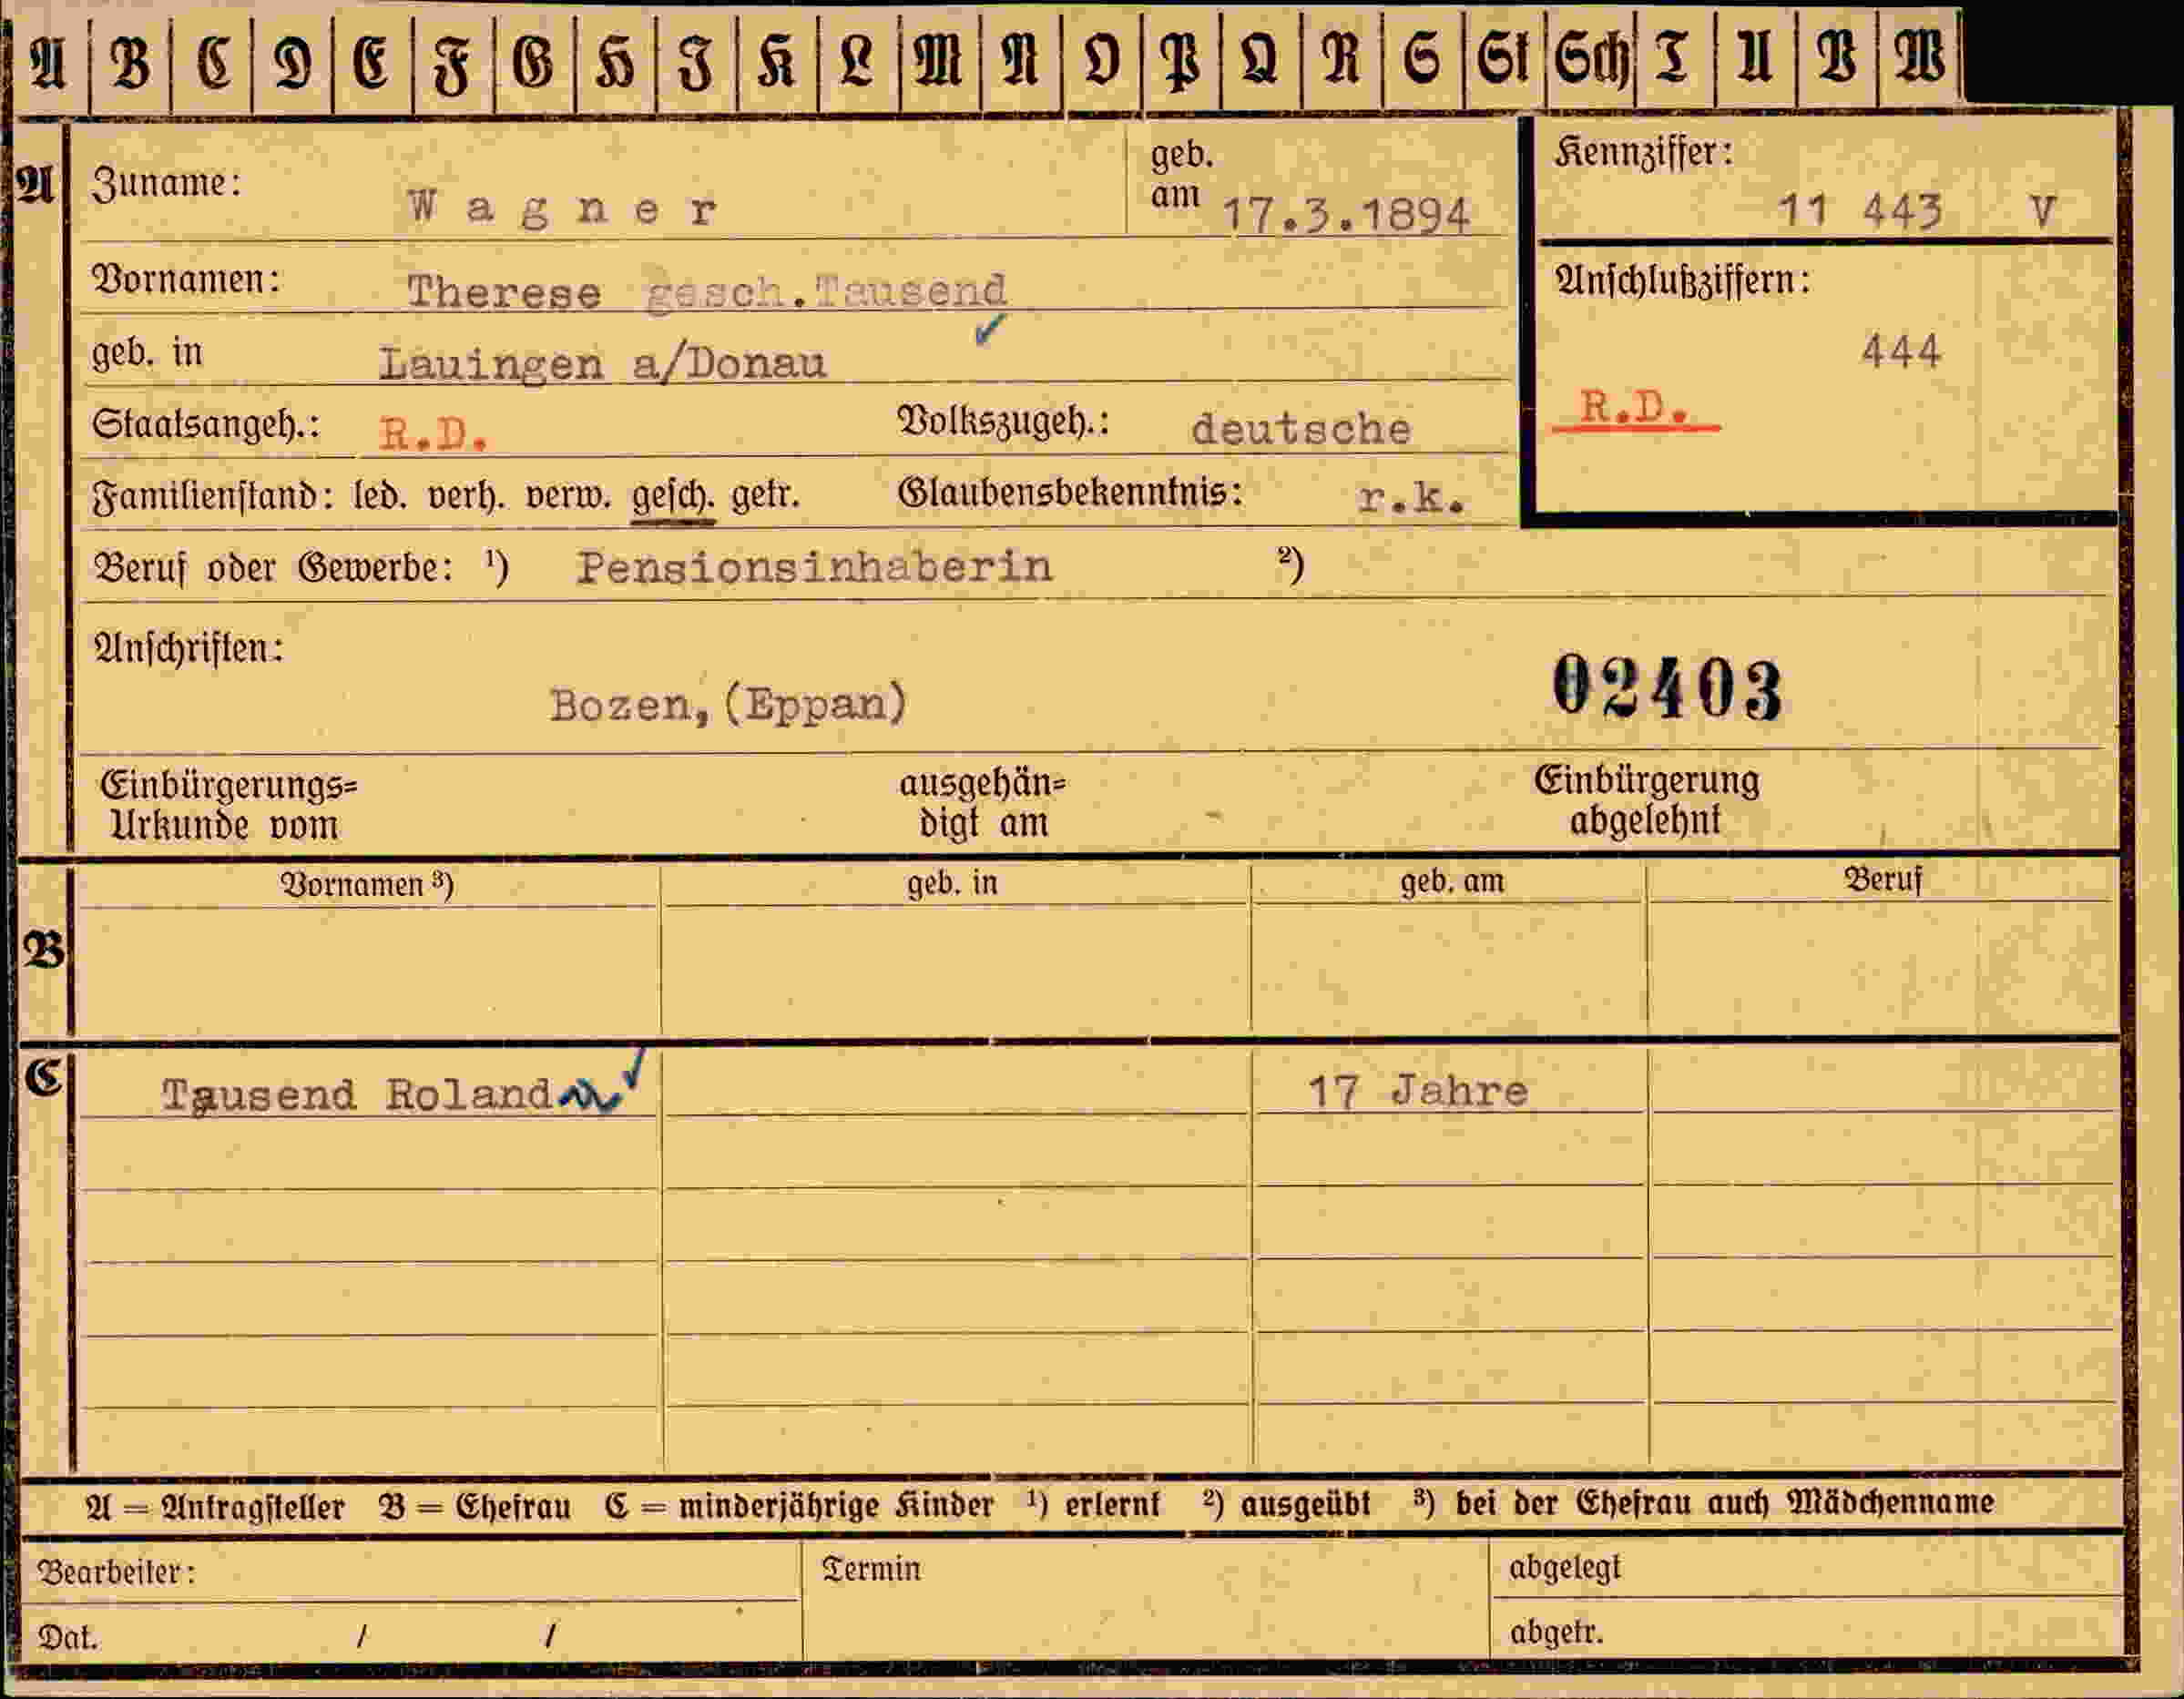 A B C D E F G H I K L M N O P Q R S St Sch T U V W
A Zuname: Wagner geb. am 17.3.1894
Kennziffer: 11 443 V
Vornamen: Therese gesch.Tausend
Anschlußziffern: 444
geb. in Lauingen a/Donau
R.D.
Staatsangeh.: R.D. Volkszugeh.: deutsche
Familienstand: led. verh. verw. gesch. getr. Glaubensbekenntnis: r.k.
Beruf oder Gewerbe: ¹) Pensionsinhaberin ²)
Anschriften:
Bozen, (Eppan) 02403
Einbürgerungs= ausgehän= Einbürgerung
Urkunde vom digt am abgelehnt
Vornamen ³) geb. in geb. am Beruf
B
C Tausend Roland 17 Jahre
A = Antragsteller B = Ehefrau C = minderjährige Kinder ¹) erlernt ²) ausgeübt ³) bei der Ehefrau auch Mädchenname
Bearbeiter: Termin abgelegt
Dat. / / abgetr.